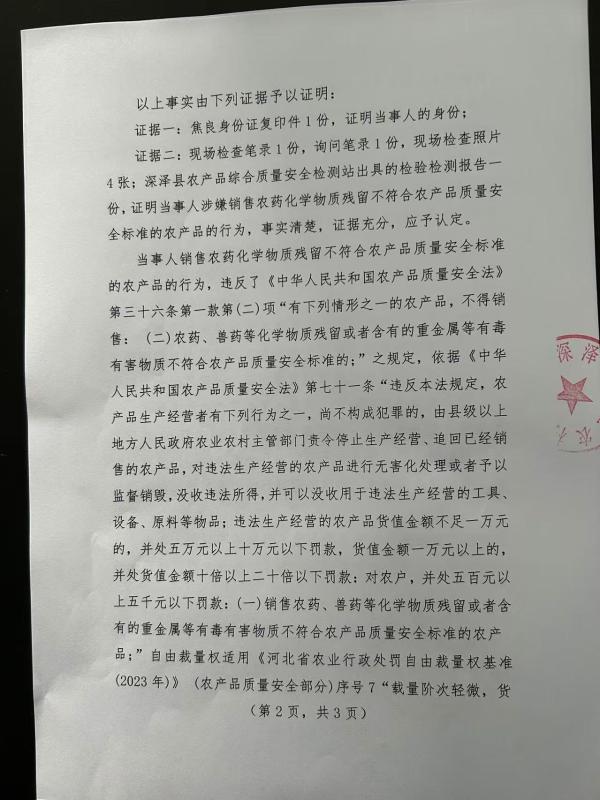 以上事实由下列证据予以证明：
证据一：焦良身份证复印件1份，证明当事人的身份；
证据二：现场检查笔录1份，询问笔录1份，现场检查照片
4张；深泽县农产品综合质量安全检测站出具的检验检测报告一
份，证明当事人涉嫌销售农药化学物质残留不符合农产品质量安
全标准的农产品的行为，事实清楚，证据充分，应予认定。
当事人销售农药化学物质残留不符合农产品质量安全标准
的农产品的行为，违反了《中华人民共和国农产品质量安全法》
第三十六条第一款第(二)项“有下列情形之一的农产品，不得销
售：（二)农药、兽药等化学物质残留或者含有的重金属等有毒
有害物质不符合农产品质量安全标准的；”之规定，依据《中华
人民共和国农产品质量安全法》第七十一条“违反本法规定，农
产品生产经营者有下列行为之一，尚不构成犯罪的，由县级以上
地方人民政府农业农村主管部门责令停止生产经营、追回已经销
售的农产品，对违法生产经营的农产品进行无害化处理或者予以
监督销毁，没收违法所得，并可以没收用于违法生产经营的工具、
设备、原料等物品；违法生产经营的农产品货值金额不足一万元
的，并处五万元以上十万元以下罚款，货值金额一万元以上的，
并处货值金额十倍以上二十倍以下罚款：对农户，并处五百元以
上五千元以下罚款：(一)销售农药、兽药等化学物质残留或者含
有的重金属等有毒有害物质不符合农产品质量安全标准的农产
品；”自由裁量权适用《河北省农业行政处罚自由裁量权基准
(2023年)》（农产品质量安全部分)序号7“裁量阶次轻微，货
（第2页，共3页）
深泽